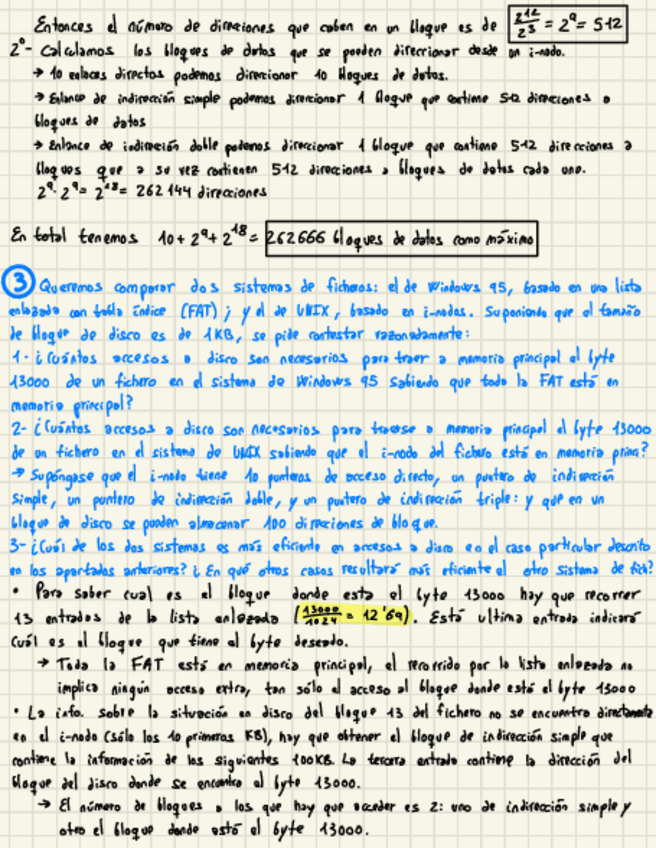 Entonces el número de direcciones que caben en un bloque es de 2^12/2^3 = 2^9 = 512
2º- Calculamos los bloques de datos que se pueden direccionar desde un i-nodo.
→ 10 enlaces directos podemos direccionar 10 bloques de datos.
→ Enlance de indirección simple podemos direccionar 1 bloque que contiene 512 direcciones a
bloques de datos
→ Enlance de indirección doble podemos direccionar 1 bloque que contiene 512 direcciones a
bloques que a su vez contienen 512 direcciones a bloques de datos cada uno.
2^9 · 2^9 = 2^18 = 262144 direcciones
En total tenemos 10 + 2^9 + 2^18 = 262666 bloques de datos como máximo
3 Queremos comparar dos sistemas de ficheros: el de Windows 95, basado en una lista
enlazada con tabla índice (FAT) ; y el de UNIX, basado en i-nodos. Suponiendo que el tamaño
de bloque de disco es de 1KB, se pide contestar razonadamente:
1- ¿Cuántos accesos a disco son necesarios para traer a memoria principal el byte
13000 de un fichero en el sistema de Windows 95 sabiendo que toda la FAT está en
memoria principal?
2- ¿Cuántos accesos a disco son necesarios para traerse a memoria principal el byte 13000
de un fichero en el sistema de UNIX sabiendo que el i-nodo del fichero está en memoria princ?
→ Supóngase que el i-nodo tiene 10 punteros de acceso directo, un puntero de indirección
simple, un puntero de indirección doble, y un puntero de indirección triple: y que en un
bloque de disco se pueden almacenar 100 direcciones de bloque.
3- ¿Cuál de los dos sistemas es más eficiente en accesos a disco en el caso particular descrito
en los apartados anteriores? ¿En qué otros casos resultará más eficiente el otro sistema de fich?
• Para saber cual es el bloque donde esta el byte 13000 hay que recorrer
13 entradas de la lista enlazada (13000/1024 = 12'69). Está ultima entrada indicará
cuál es el bloque que tiene el byte deseado.
→ Toda la FAT está en memoria principal, el recorrido por la lista enlazada no
implica ningún acceso extra, tan sólo el acceso al bloque donde está el byte 13000
• La info. sobre la situación en disco del bloque 13 del fichero no se encuentra directamente
en el i-nodo (sólo los 10 primeros KB), hay que obtener el bloque de indirección simple que
contiene la información de los siguientes 100KB. La tercera entrada contiene la dirección del
bloque del disco donde se encontra el byte 13000.
→ El número de bloques a los que hay que acceder es 2: uno de indirección simple y
otro el bloque donde está el byte 13000.